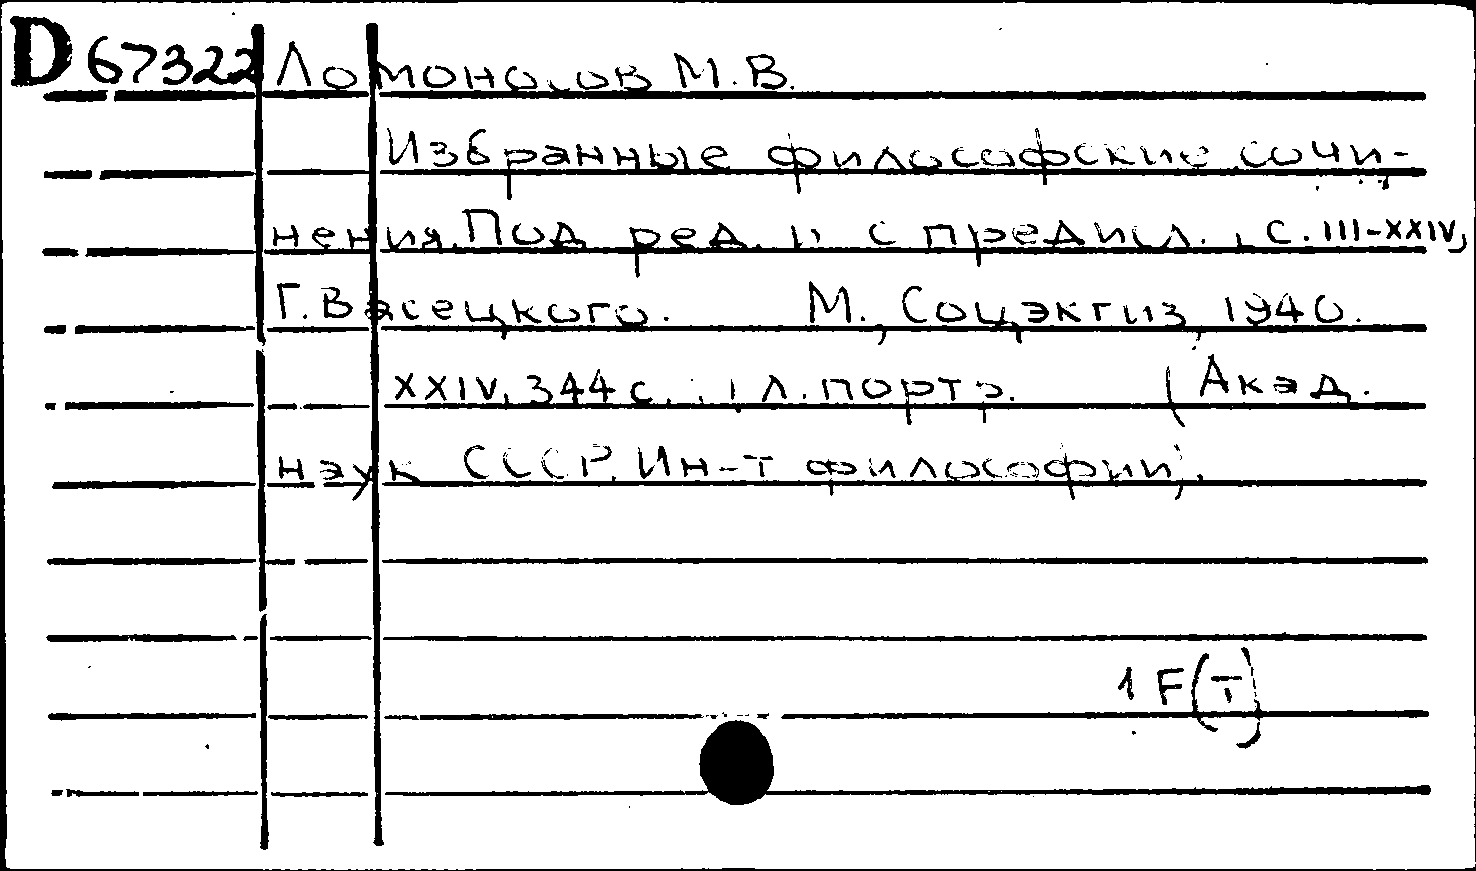 D 67322 Ломоносов М.В.
Избранные философские сочи-
нения. Под ред. и с предисл., с. III-XXIV,
Г. Васецкого. М., Соцэкгиз, 1940.
XXIV, 344 с., 1 л. портр. (Акад.
наук СССР. Ин-т философии).
1 F(T)